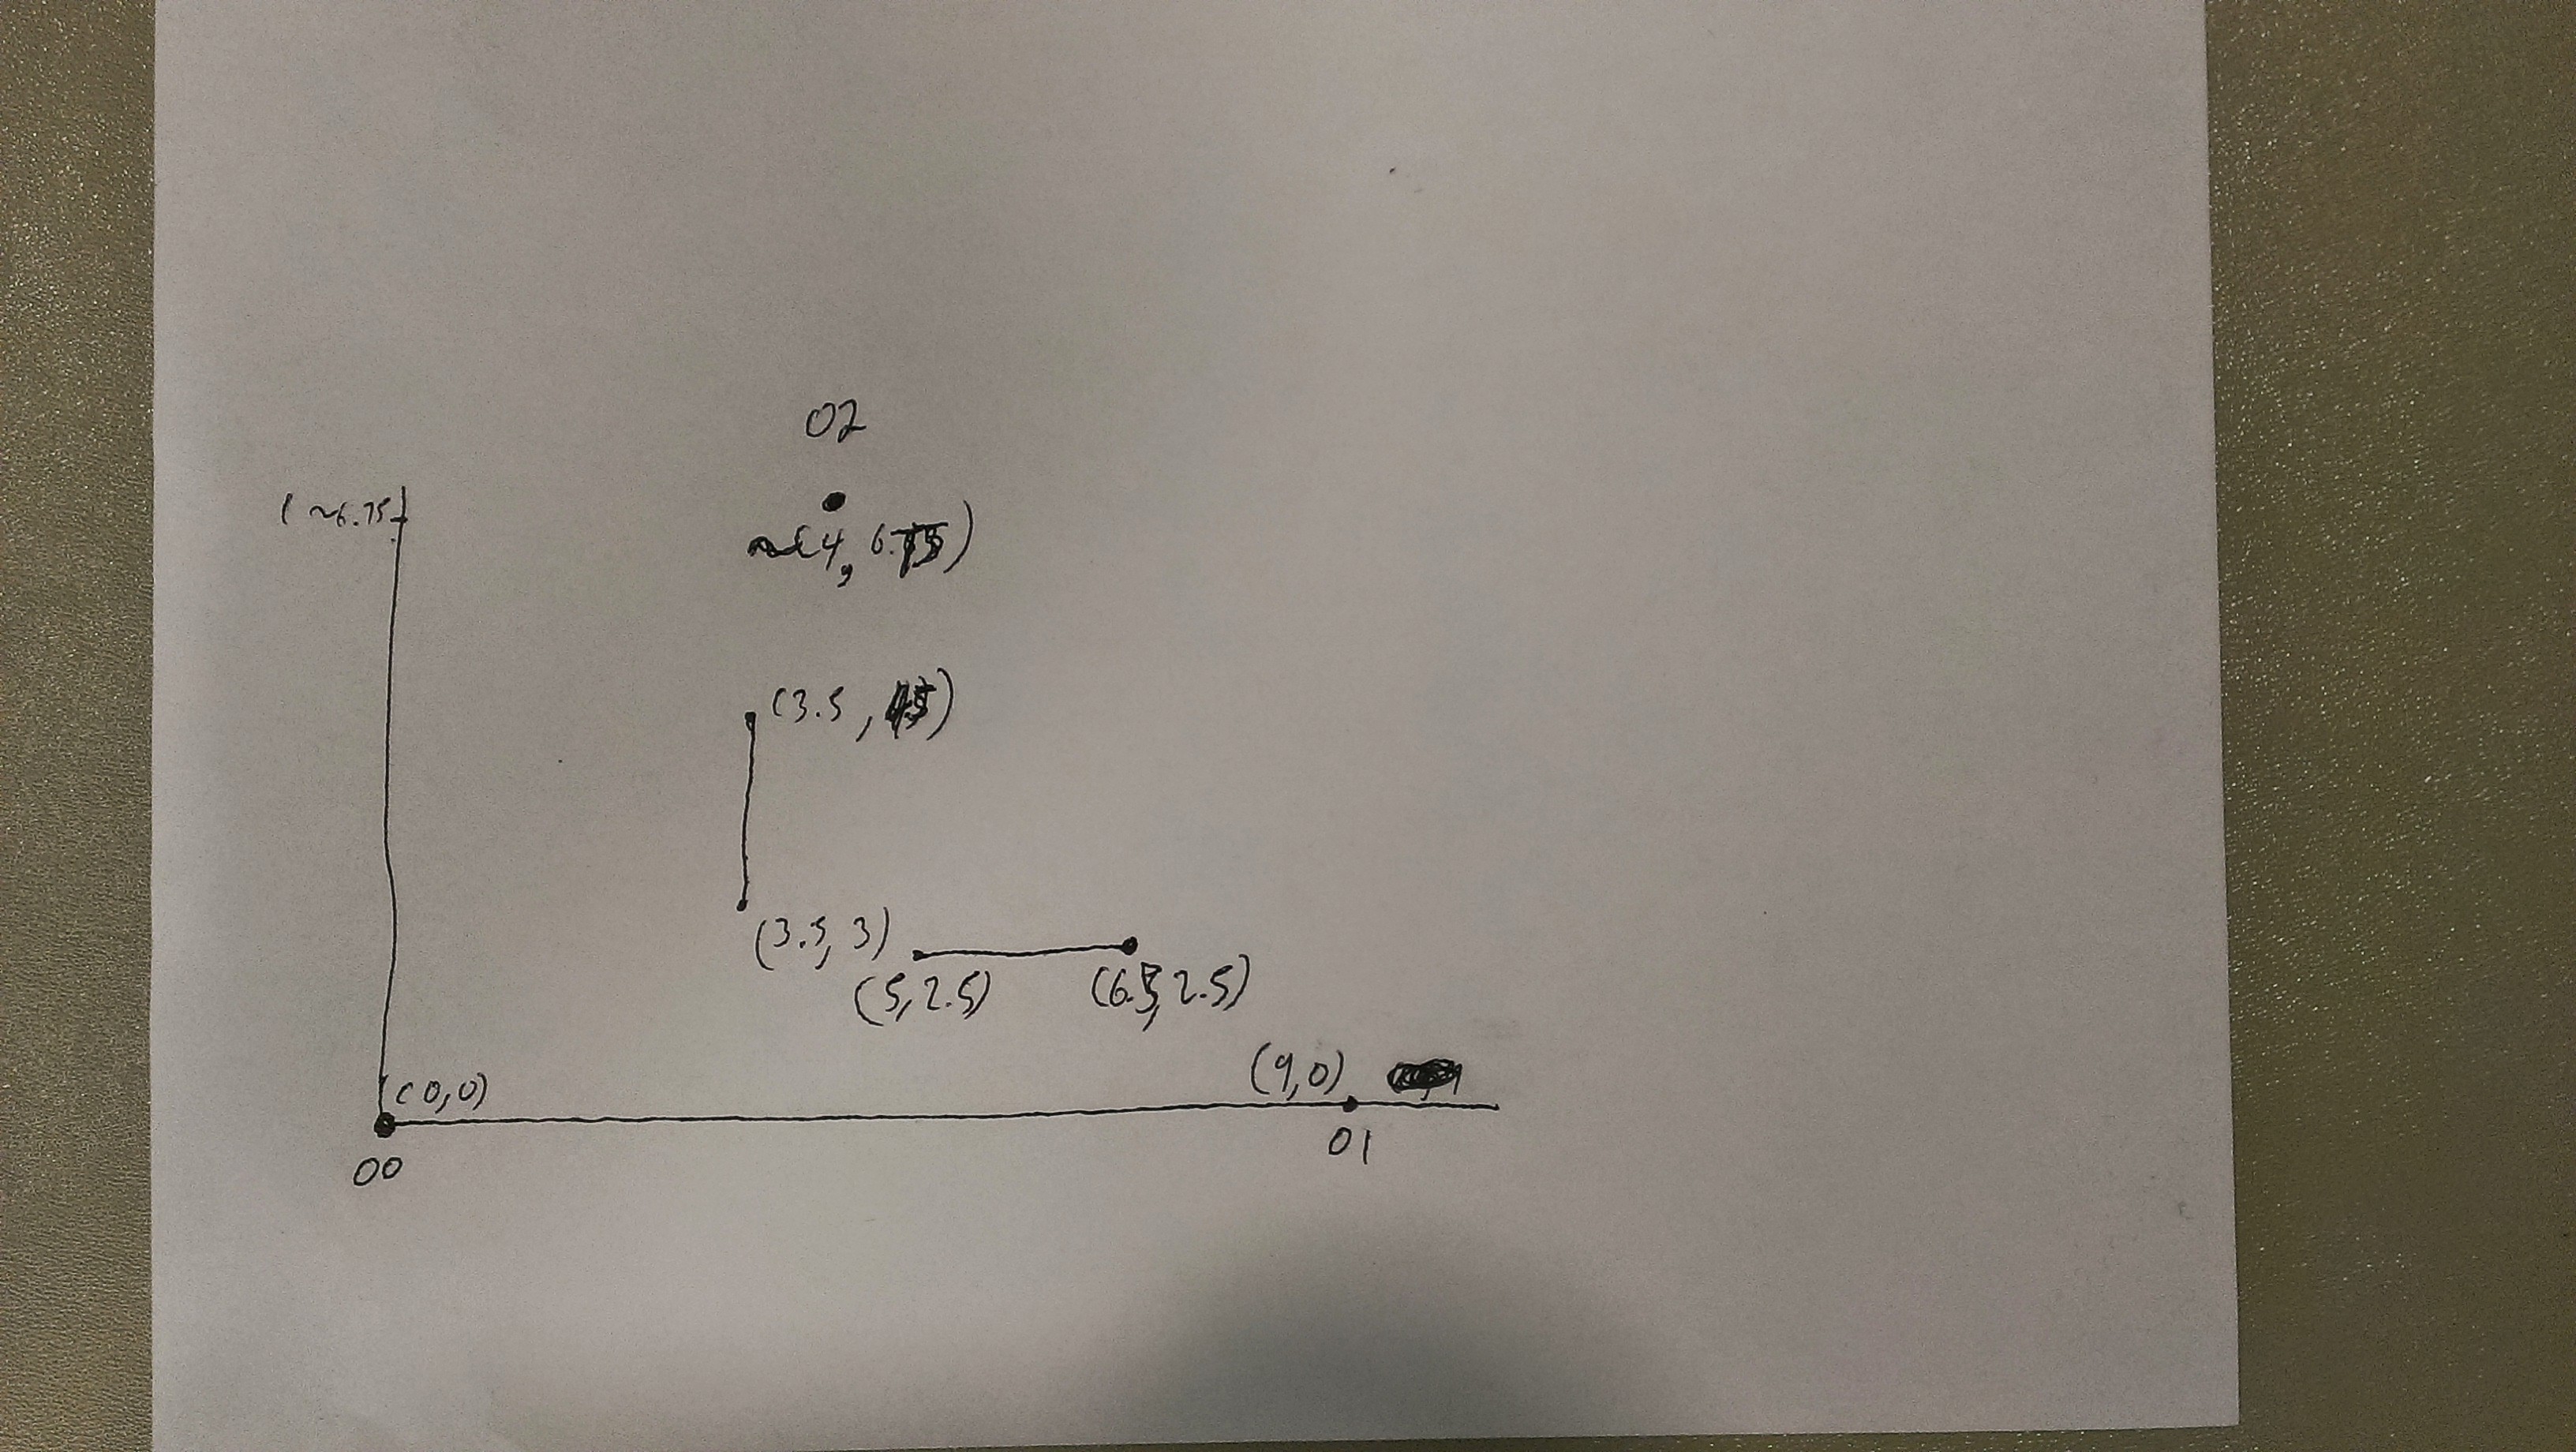 02
(~6.75
~(4, 6.75)
(3.5, 4.5)
(3.5, 3)
(5, 2.5)
(6.5, 2.5)
(0,0)
(9,0)
00
01